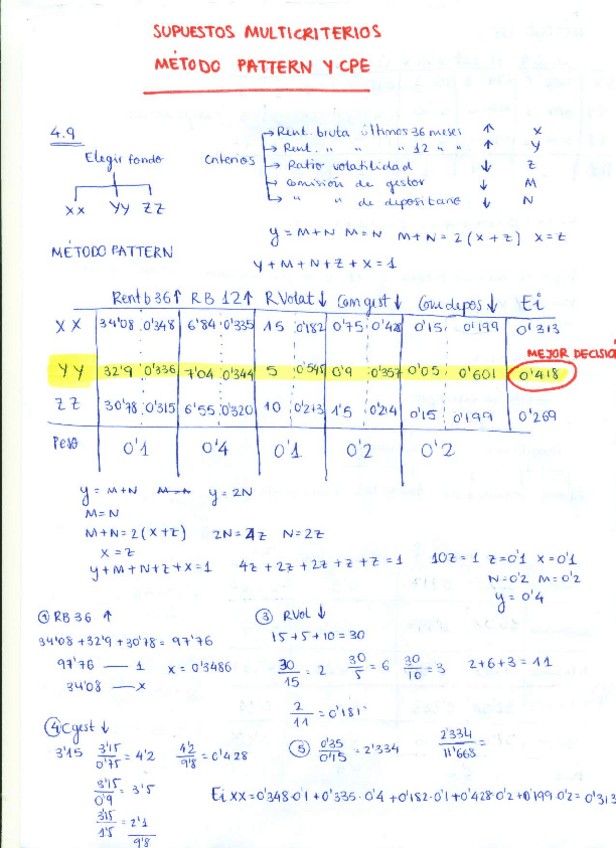 SUPUESTOS MULTICRITERIOS
MÉTODO PATTERN Y CPE
4.9
Elegir fondo
XX YY ZZ
Criterios
→ Rent. bruta últimos 36 meses ↑ X
→ Rent. " " " 12 " " ↑ Y
→ Ratio volatilidad ↓ Z
→ Comisión de gestor ↓ M
→ " " de depositario ↓ N
y = M+N M=N M+N = 2(X+Z) X=Z
MÉTODO PATTERN
Y+M+N+Z+X=1
Rentb 36↑ RB 12↑ RVolat↓ Comgest↓ Com depos↓ Ei
XX 34'08 0'348 6'84 0'335 15 0'182 0'75 0'428 0'15 0'199 0'313
MEJOR DECISIÓ
YY 32'9 0'336 7'04 0'344 5 0'545 0'9 0'357 0'05 0'601 0'418
ZZ 30'78 0'315 6'55 0'320 10 0'273 1'5 0'214 0'15 0'199 0'269
Peso 0'1 0'4 0'1 0'2 0'2
y = M+N y=2N
M=N
M+N=2(X+Z) 2N=4Z N=2Z
X=Z
y+M+N+Z+X=1 4Z+2Z+2Z+Z+Z=1 10Z=1 Z=0'1 X=0'1
N=0'2 M=0'2
y=0'4
① RB 36 ↑
34'08+32'9+30'78=97'76
97'76 — 1 x=0'3486
34'08 — X
③ RVol ↓
15+5+10=30
30/15 = 2 30/5 = 6 30/10 = 3 2+6+3=11
2/11 = 0'181
④ Cgest ↓
3'15 3'15/0'75 = 4'2 4'2/9'8 = 0'428
3'15/0'9 = 3'5
3'15/1'5 = 2'1
9'8
⑤ 0'35/0'15 = 2'334 2'334/11'668 =
Ei XX=0'348·0'1+0'335·0'4+0'182·0'1+0'428·0'2+0'199·0'2=0'313